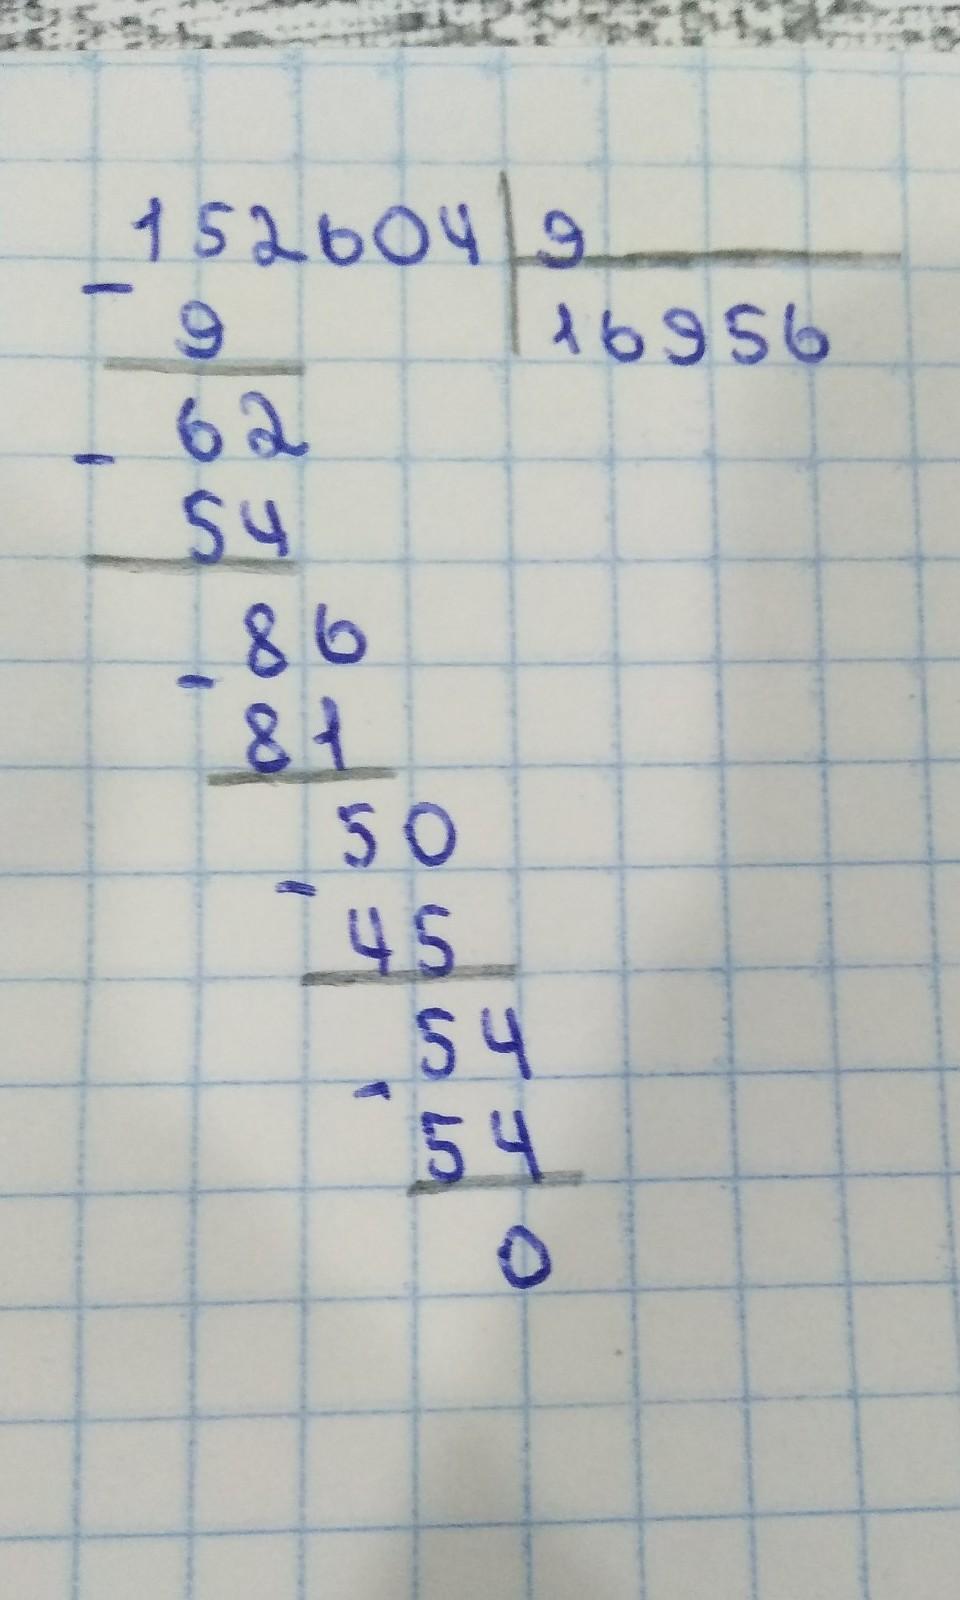 152604 9
- 9 16956
62
- 54
86
- 81
50
- 45
54
- 54
0